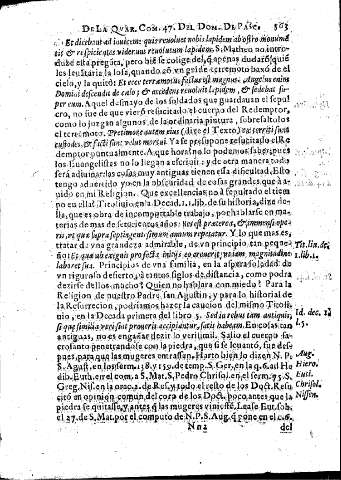 DE LA QVAR. COM. 47. DEL DOM. DE PASC. 563
Et dicebat ad inuicem: quis reuoluet nobis lapidem ab ostio monumē
ti: & respicientes viderunt reuolutum lapidem. S. Matheo no intro-
duce esta pregūta, pero biē se colige del, q̄ apenas dudarō quiē
les leuātaria la losa, quando cō vn grāde terremoto baxò de el
cielo, y la quitò: Et ecce terræmotus factus est magnus: Angelus enim
Domini descendit de cælo; & accedens reuoluit lapidem, & sedebat su-
per eum. Aquel desmayo de los soldados que guardauan el sepul
cro, no fue de que vierō resucitado el cuerpo del Redemptor,
como lo juzgan algunos de la ordinaria pintura, sobresaltolos
el terremoto. Præ timore autem eius (dize el Texto) exterriti sunt
custodes, & facti sunt velut mortui. Ya se presupone resucitado el Re
demptor puntualmente. A que hora no lo podemos saber, pues
los Euangelistas no lo llegan a escriuir: y de otra manera todo
serà adiuinar. las cosas muy antiguas tienen essa dificultad. Esto
tengo aduertido yo en la obscuridad de cosas grandes que ha
auido en mi Religion. Que excelencias no à sepultado el tiem
po en ella? Tito Liuio en la Decad. 1. lib. de su historia, dize de-
lla, que es obra de incomputable trabajo, por hablarse en ma-
terias de mas de setecientos años: Res est præterea, & immensi ope-
ris, vt quæ supra septingentesimum annum repetatur. Y lo que mas es,
tratar de vna grandeza admirable, de vn principio tan peque
ño: Et quæ ab exiguis profecta initijs eo creuerit, vt iam magnitudine
laboret sua. Principios de vna familia, en la aspera soledad de
vn riguroso desierto, y à tantos siglos de distancia, como podra
dezirse dellos mucho? Quien no hablara con miedo? Para la
Religion de nuestro Padre san Agustin, y para lo historial de
la Resurreccion, podriamos hazer la caucion del mismo Tito Li-
uio, en la Decada primera del libro 5. Sed in rebus tam antiquis,
si quæ similia veri sint pro veris accipiantur, satis habeam. En cosas tan
antiguas, no es engañar dezir lo verisimil. Salio el cuerpo sa-
crosanto penetrandose con la piedra, que si se leuantò, fue des-
pues, para que las mugeres entrassen. Harto bien lo dizen N. P.
S. Agust. en los serm. 138. y 159. de temp. S. Ger. en la q. 6. ad He
dib. Euth. en el com. a S. Mat. S. Pedro Chrisol. en el serm. 75. S.
Greg. Nis. en la orac. 2. de Res. y todo el resto de los Doct. Resu
citò en opinion comun del coro de los Doct. poco antes que la
piedra se quitasse, y antes q̄ las mugeres viniessē. Lease Eut. sob.
el 27. de S. Mat. por el computo de N. P. S. Aug. q̄ pone en el c. 6.
Nn 2 del
Tit. liu. dec.
1. lib. 1.
Id. dec. 1.
l. 5.
Aug.
Hiero.
Euti.
Chrisol.
Nissen.